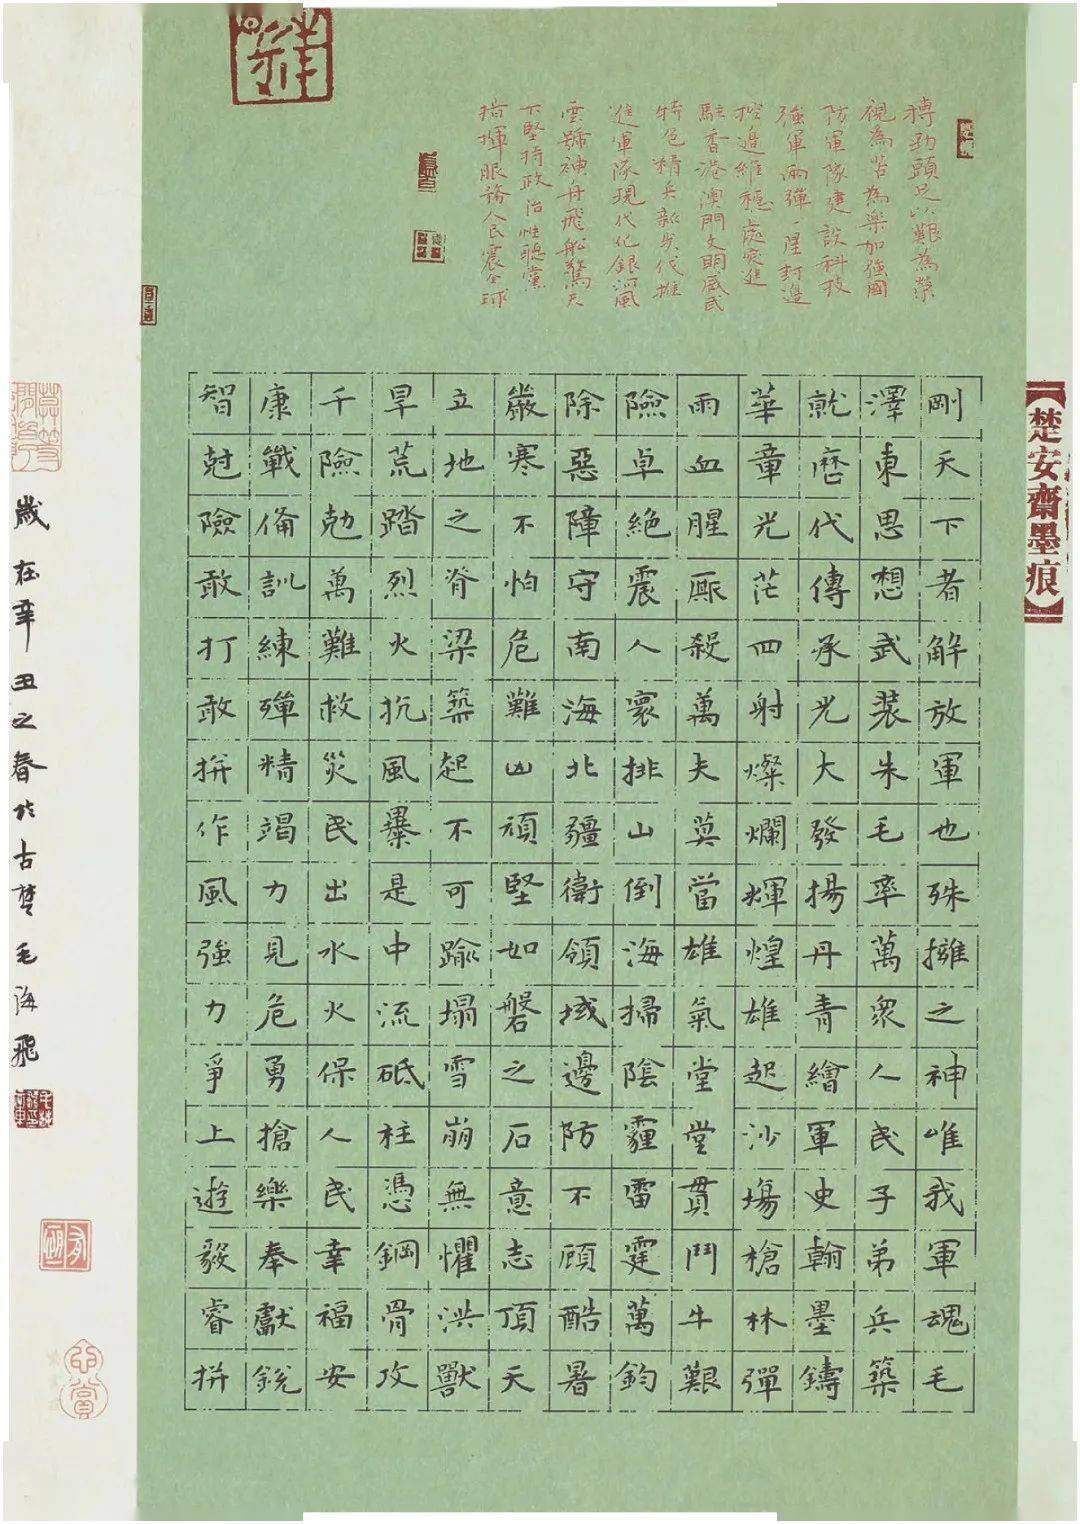 【楚安齋墨痕】
剛天下者解放軍也殊擁之神唯我軍魂毛
澤東思想武裝朱毛率萬衆人民子弟兵築
就歷代傳承光大發揚丹青繪軍史翰墨鑄
華章光芒四射燦爛輝煌雄起沙場槍林彈
雨血腥厮殺萬夫莫當雄氣堂堂貫鬥牛艱
險卓絕震人寰排山倒海掃陰霾雷霆萬鈞
除惡障守南海北疆衛領域邊防不顧酷暑
嚴寒不怕危難山頑堅如磐之石意志頂天
立地之脊梁築起不可踰塌雪崩無懼洪獸
旱荒踏烈火抗風暴是中流砥柱憑鋼骨攻
千險勉萬難救災民出水火保人民幸福安
康戰備訓練殫精竭力見危勇搶樂奉獻銳
智尅險敢打敢拼作風強力爭上遊毅睿拼
搏劲頭足以艱為榮
視為苦為樂加強國
防軍隊建設科技
強軍兩彈一星封邊
控邊維穩處突進
駐香港澳門文明威武
特色精兵新代推
進軍隊現代化銀河風
雲號神舟飛船驚天
下堅持政治性聽黨
指揮服務人民震全球
歲在辛丑之春於古楚毛海飛